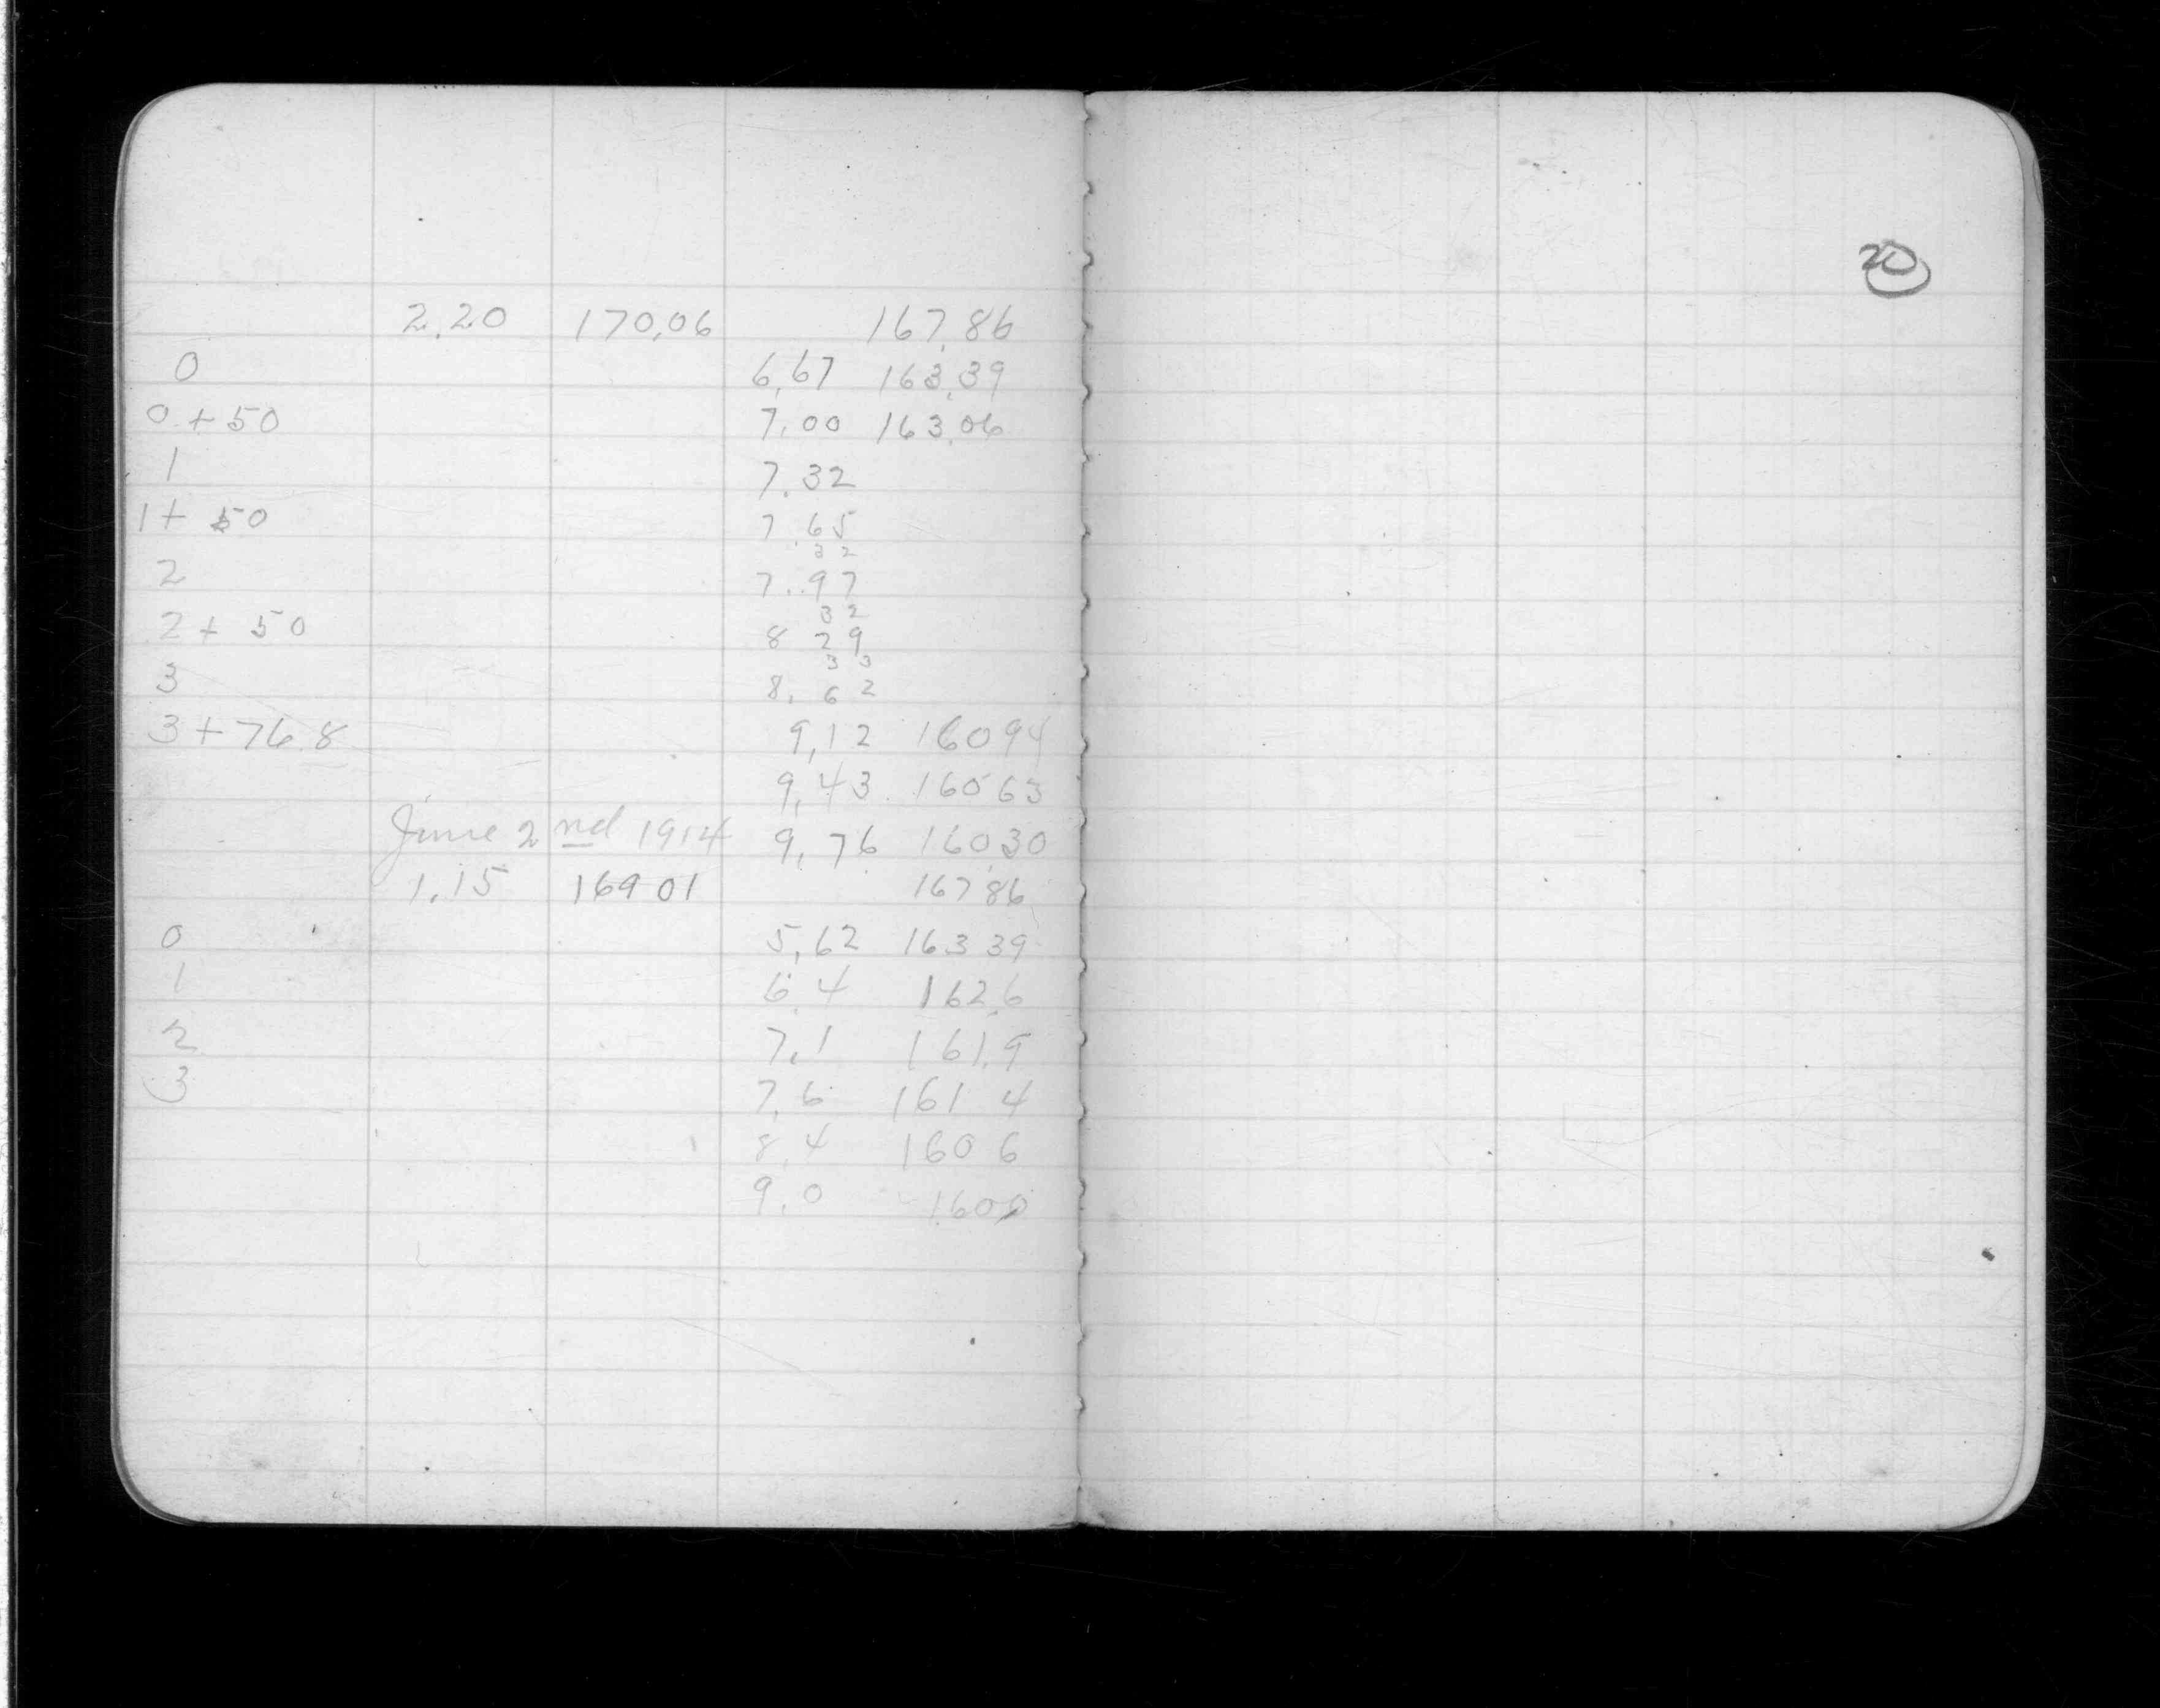 2.20 170,06 167.86
0 6,67 163.39
0 + 50 7.00 163.06
1 7.32
1 + 50 7.65
32
2 7.97
32
2 + 50 8 29
33
3 8.62
3 + 76.8 9,12 160 94
9,43 160 63
June 2nd 1914 9,76 160.30
1.15 169 01 167 86
0 5,62 163 39
1 6.4 162.6
2 7.1 161.9
3 7.6 161 4
8.4 160 6
9.0 160 0
20